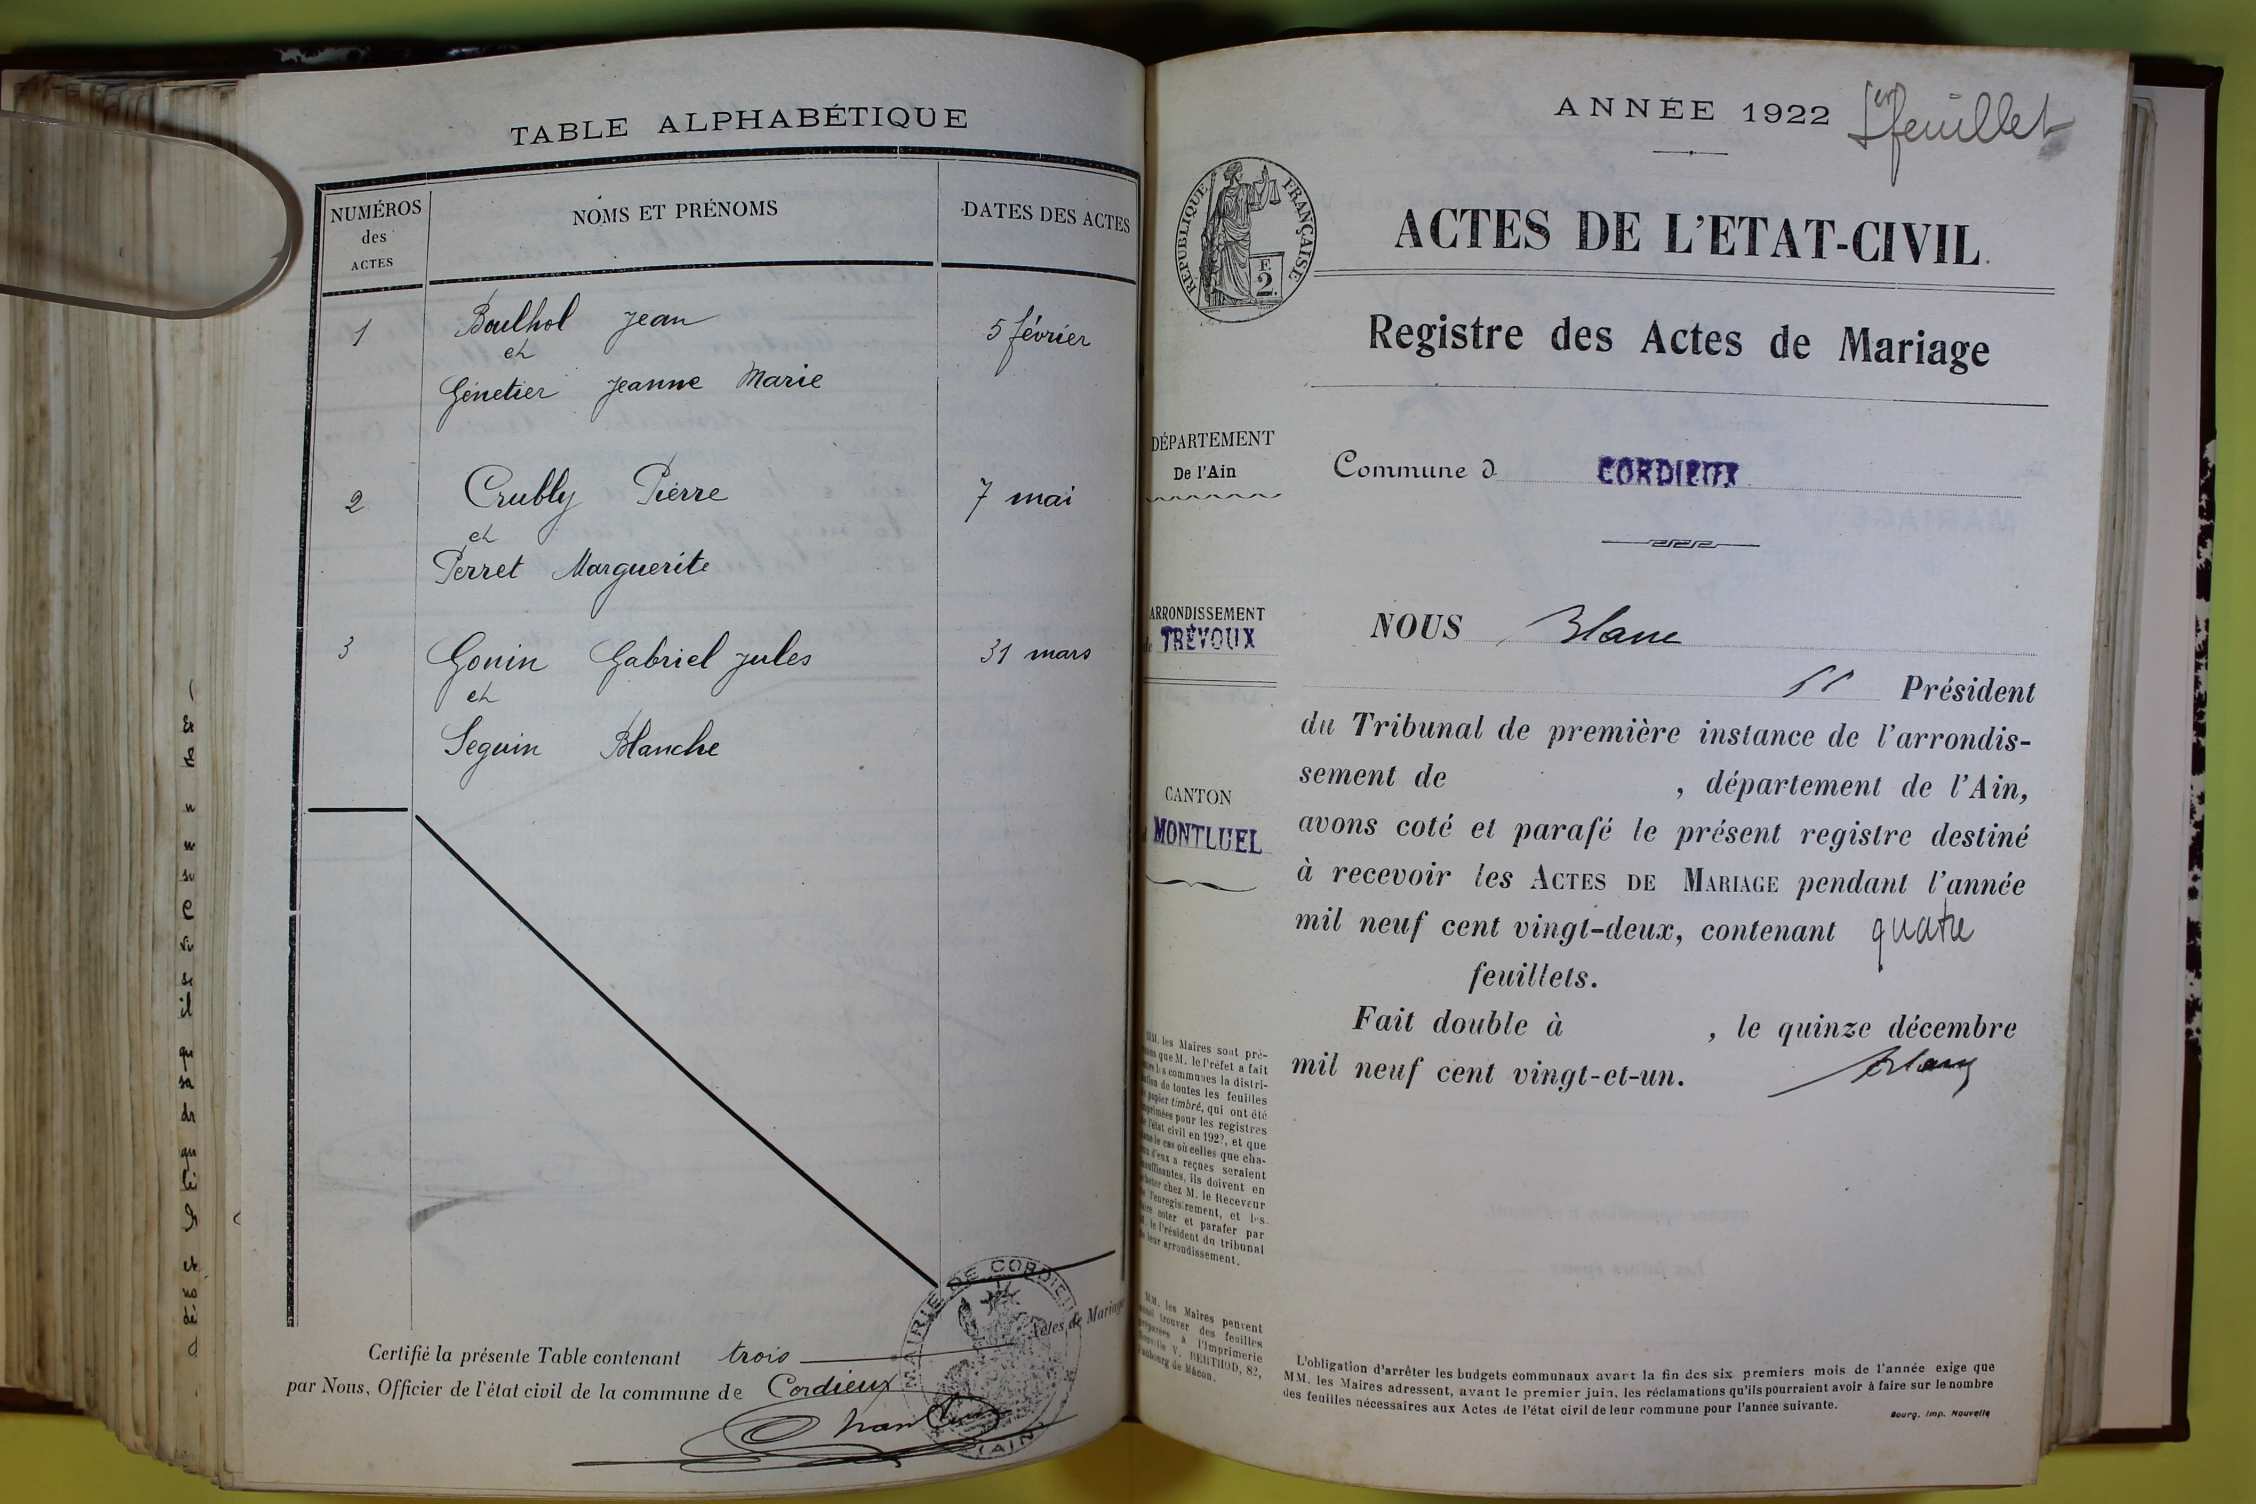 TABLE ALPHABÉTIQUE
NUMÉROS des ACTES
NOMS ET PRÉNOMS
DATES DES ACTES
1 Boulhol Jean 5 février
et
Génetier Jeanne Marie
2 Crubly Pierre 7 mai
et
Perret Marguerite
3 Gonin Gabriel Jules 31 mars
et
Seguin Blanche
Actes de Mariage
Certifié la présente Table contenant trois
par Nous, Officier de l'état civil de la commune de Cordieux
MAIRIE DE CORDIEUX
(AIN)
ANNÉE 1922 1er feuillet
RÉPUBLIQUE FRANÇAISE
F.
2.
ACTES DE L'ETAT-CIVIL.
Registre des Actes de Mariage
DÉPARTEMENT
De l'Ain
Commune d CORDIEUX
ARRONDISSEMENT
de TRÉVOUX
CANTON
MONTLUEL
NOUS Blanc
Président
du Tribunal de première instance de l'arrondis-
sement de , département de l'Ain,
avons coté et parafé le présent registre destiné
à recevoir les ACTES DE MARIAGE pendant l'année
mil neuf cent vingt-deux, contenant quatre
feuillets.
Fait double à , le quinze décembre
mil neuf cent vingt-et-un.
Blanc
MM. les Maires sont pré-
que M. le Préfet a fait
communes la distri-
de toutes les feuilles
papier timbré, qui ont été
imprimées pour les registres
de l'état civil en 1922, et que
le cas où celles que cha-
d'eux a reçues seraient
insuffisantes, ils doivent en
acheter chez M. le Receveur
de l'enregistrement, et les
faire coter et parafer par
le Président du tribunal
de leur arrondissement.
MM. les Maires peuvent
aussi trouver des feuilles
préparées à l'Imprimerie
Nouvelle V. BERTHOD, 82,
faubourg de Mâcon.
L'obligation d'arrêter les budgets communaux avant la fin des six premiers mois de l'année exige que
MM. les Maires adressent, avant le premier juin, les réclamations qu'ils pourraient avoir à faire sur le nombre
des feuilles nécessaires aux Actes de l'état civil de leur commune pour l'année suivante.
Bourg. Imp. Nouvelle